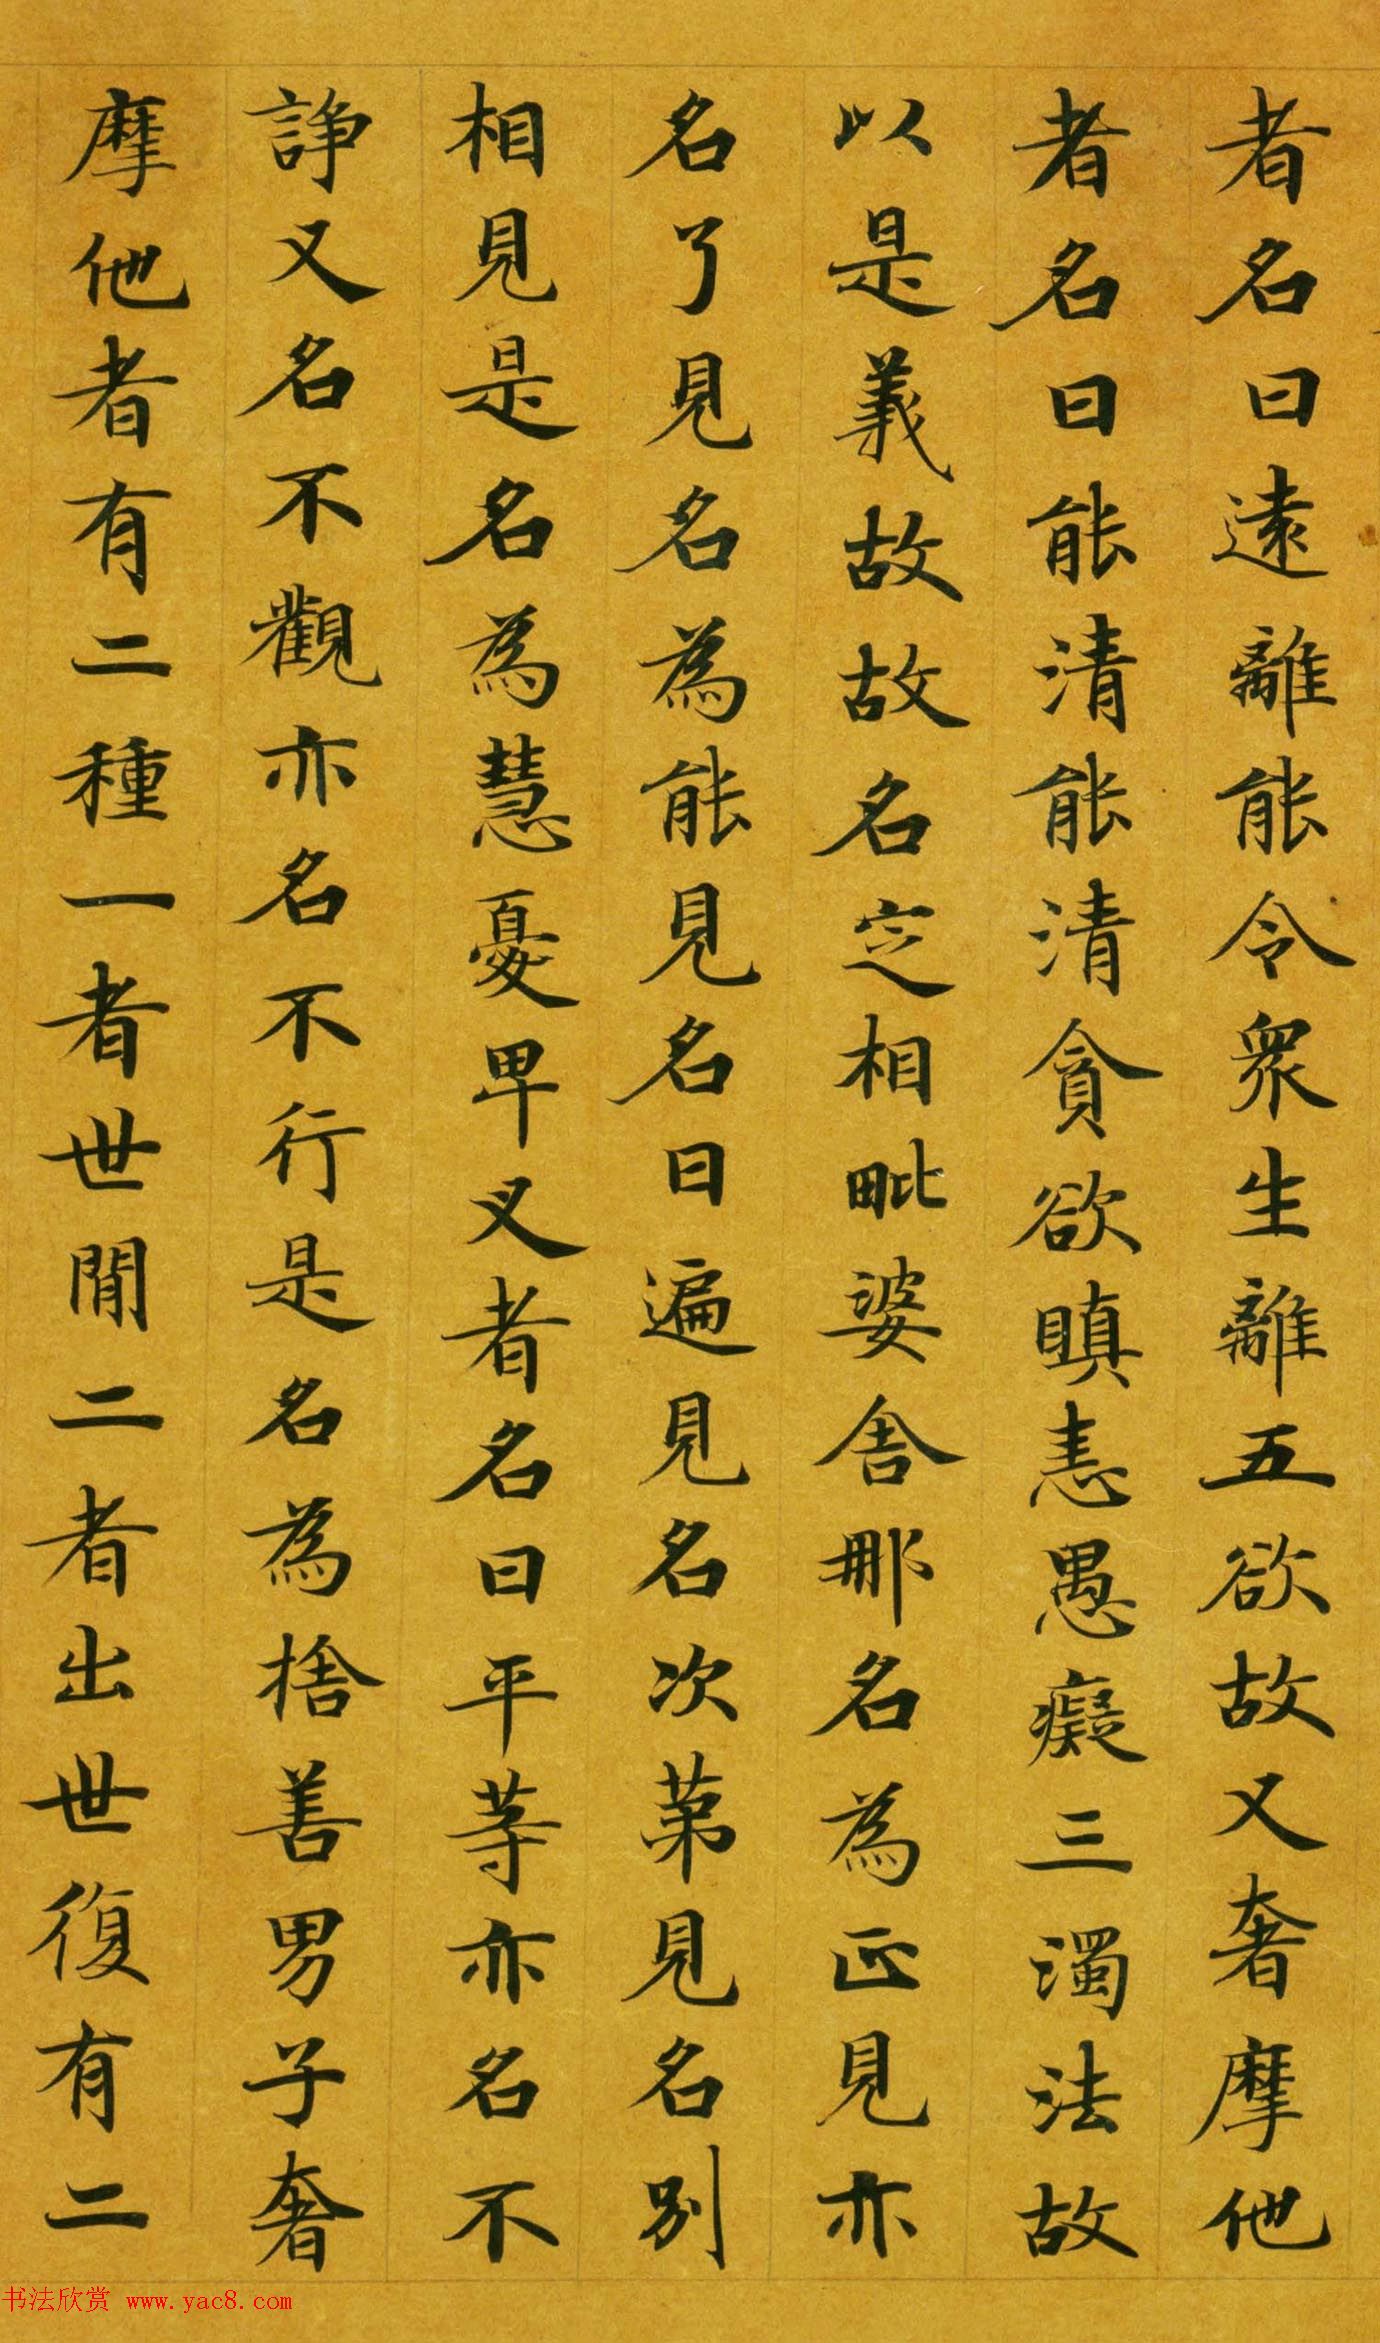 者名曰遠離能令衆生離五欲故又奢摩他
者名曰能清能清貪欲瞋恚愚癡三濁法故
以是義故故名定相毗婆舍那名為正見亦
名了見名為能見名曰遍見名次第見名別
相見是名為慧憂畢叉者名曰平等亦名不
諍又名不觀亦名不行是名為捨善男子奢
摩他者有二種一者世間二者出世復有二
书法欣赏 www.yac8.com